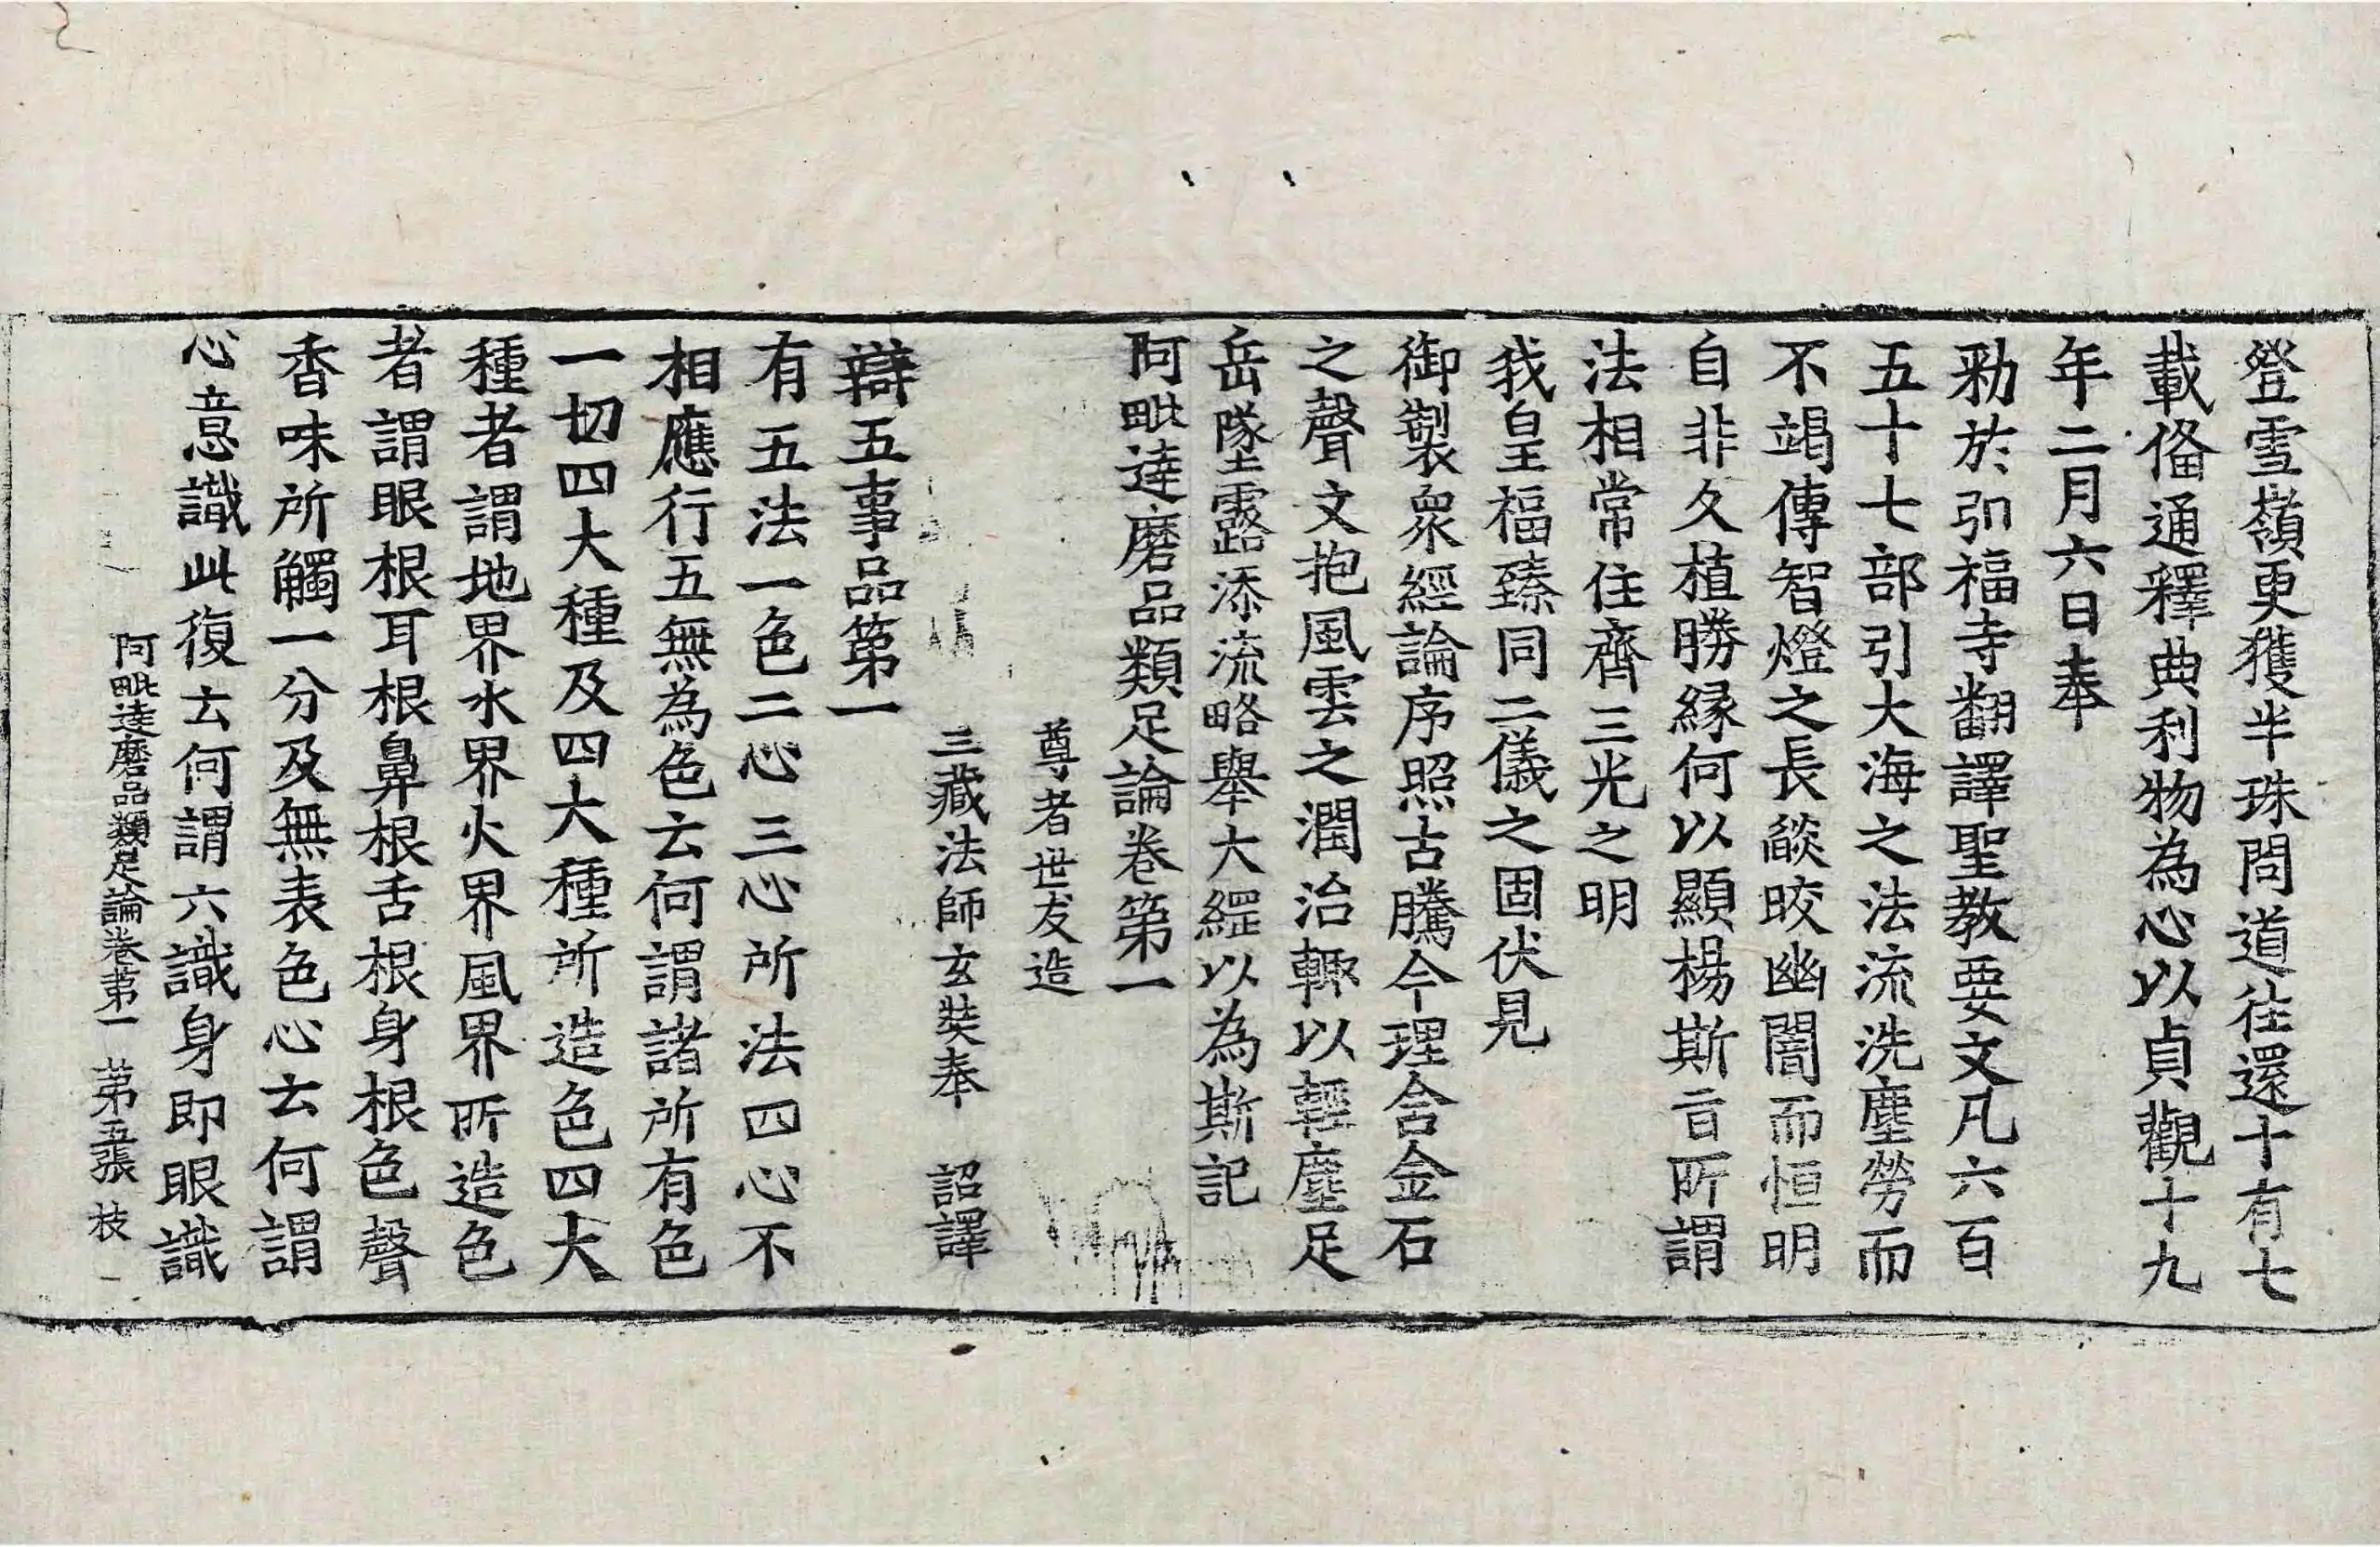 登雪嶺更獲半珠問道往還十有七
載俻通釋典利物為心以貞觀十九
年二月六日奉
勑於弘福寺翻譯聖教要文凡六百
五十七部引大海之法流洗塵勞而
不竭傳智燈之長燄晈幽闇而恒明
自非久植勝縁何以顯楊斯旨所謂
法相常住齊三光之明
我皇福臻同二儀之固伏見
御製衆經論序照古騰今理含金石
之聲文抱風雲之潤治輒以輕塵足
岳墜露添流略舉大綱以為斯記
阿毗達磨品類足論卷第一
尊者世友造
三藏法師玄奘奉　詔譯
辯五事品第一
有五法一色二心三心所法四心不
相應行五無為色云何謂諸所有色
一切四大種及四大種所造色四大
種者謂地界水界火界風界所造色
者謂眼根耳根鼻根舌根身根色聲
香味所觸一分及無表色心云何謂
心意識此復云何謂六識身即眼識
阿毗達磨品類足論卷第一　第五張　枝